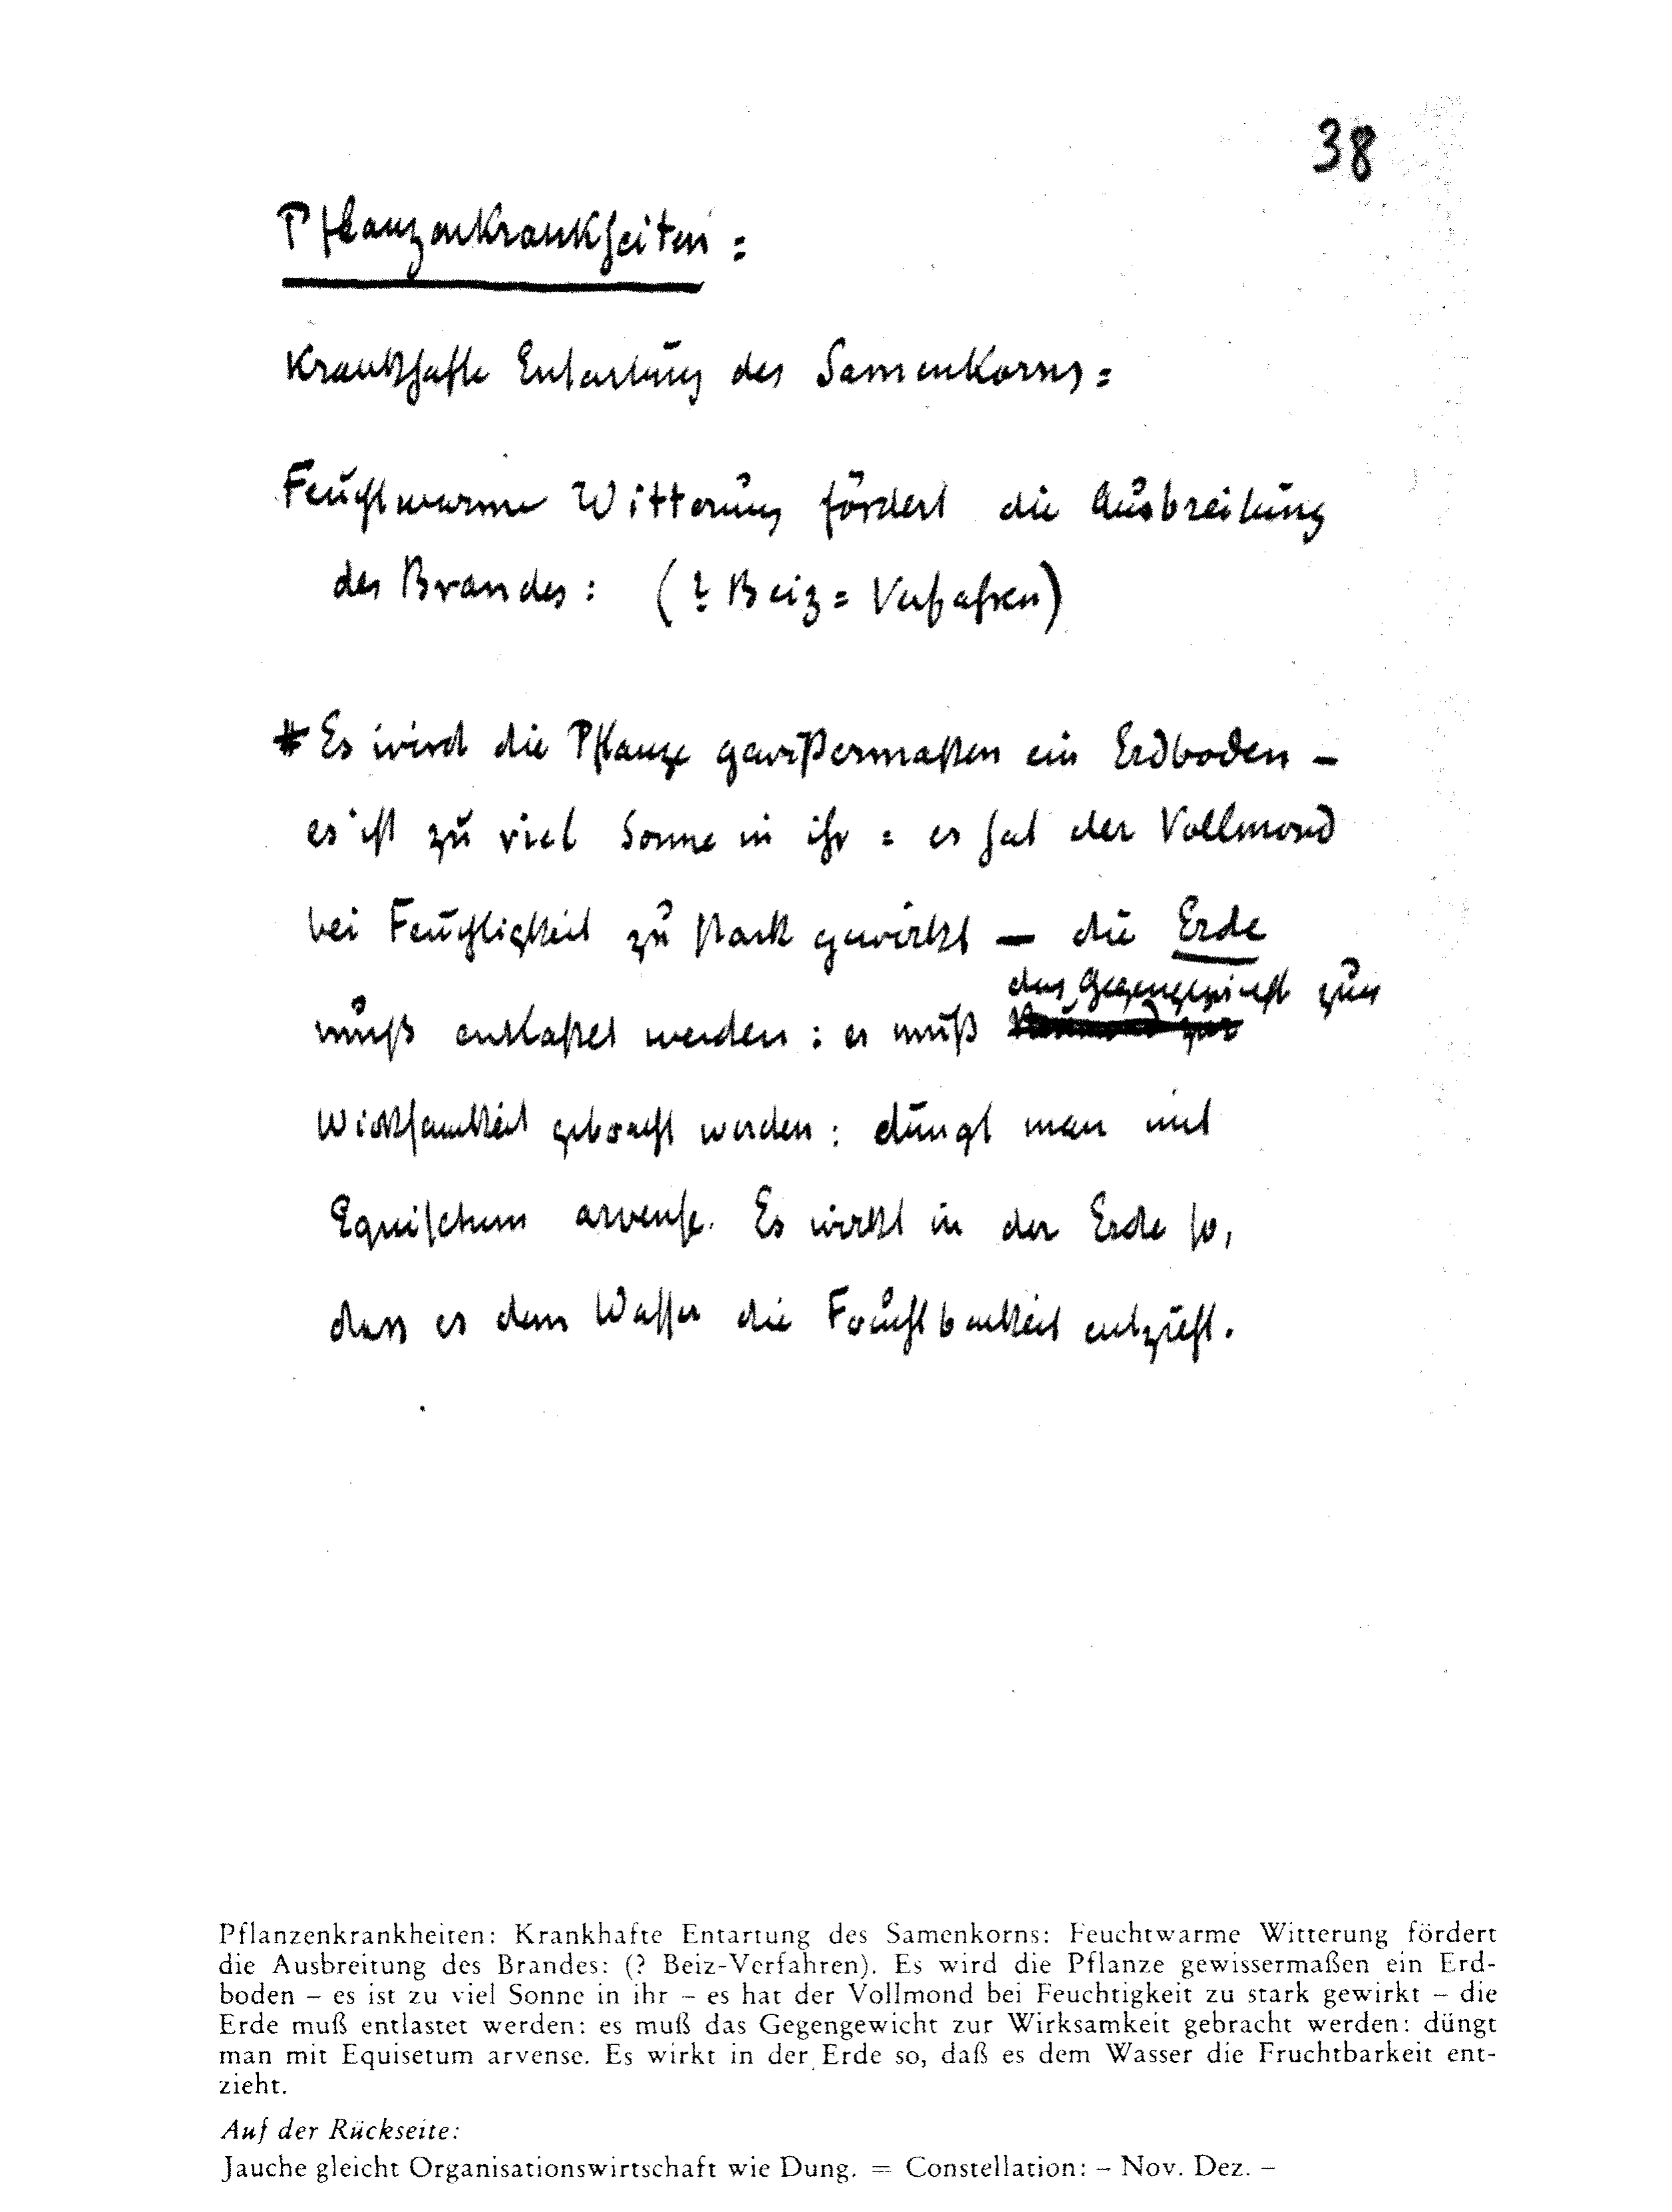 38
Pflanzenkrankheiten:
Krankhafte Entartung des Samenkorns:
Feuchtwarme Witterung fördert die Ausbreitung
des Brandes: (? Beiz=Verfahren)
* Es wird die Pflanze gewißermaßen ein Erdboden –
es ist zu viel Sonne in ihr = es hat der Vollmond
bei Feuchtigkeit zu stark gewirkt – die Erde
das Gegengewicht zur
muß entlastet werden: es muß
Wirksamkeit gebracht werden: düngt man mit
Equisetum arvense. Es wirkt in der Erde so,
dass es dem Wasser die Fruchtbarkeit entzieht.
Pflanzenkrankheiten: Krankhafte Entartung des Samenkorns: Feuchtwarme Witterung fördert
die Ausbreitung des Brandes: (? Beiz-Verfahren). Es wird die Pflanze gewissermaßen ein Erd-
boden – es ist zu viel Sonne in ihr – es hat der Vollmond bei Feuchtigkeit zu stark gewirkt – die
Erde muß entlastet werden: es muß das Gegengewicht zur Wirksamkeit gebracht werden: düngt
man mit Equisetum arvense. Es wirkt in der Erde so, daß es dem Wasser die Fruchtbarkeit ent-
zieht.
Auf der Rückseite:
Jauche gleicht Organisationswirtschaft wie Dung. = Constellation: – Nov. Dez. –